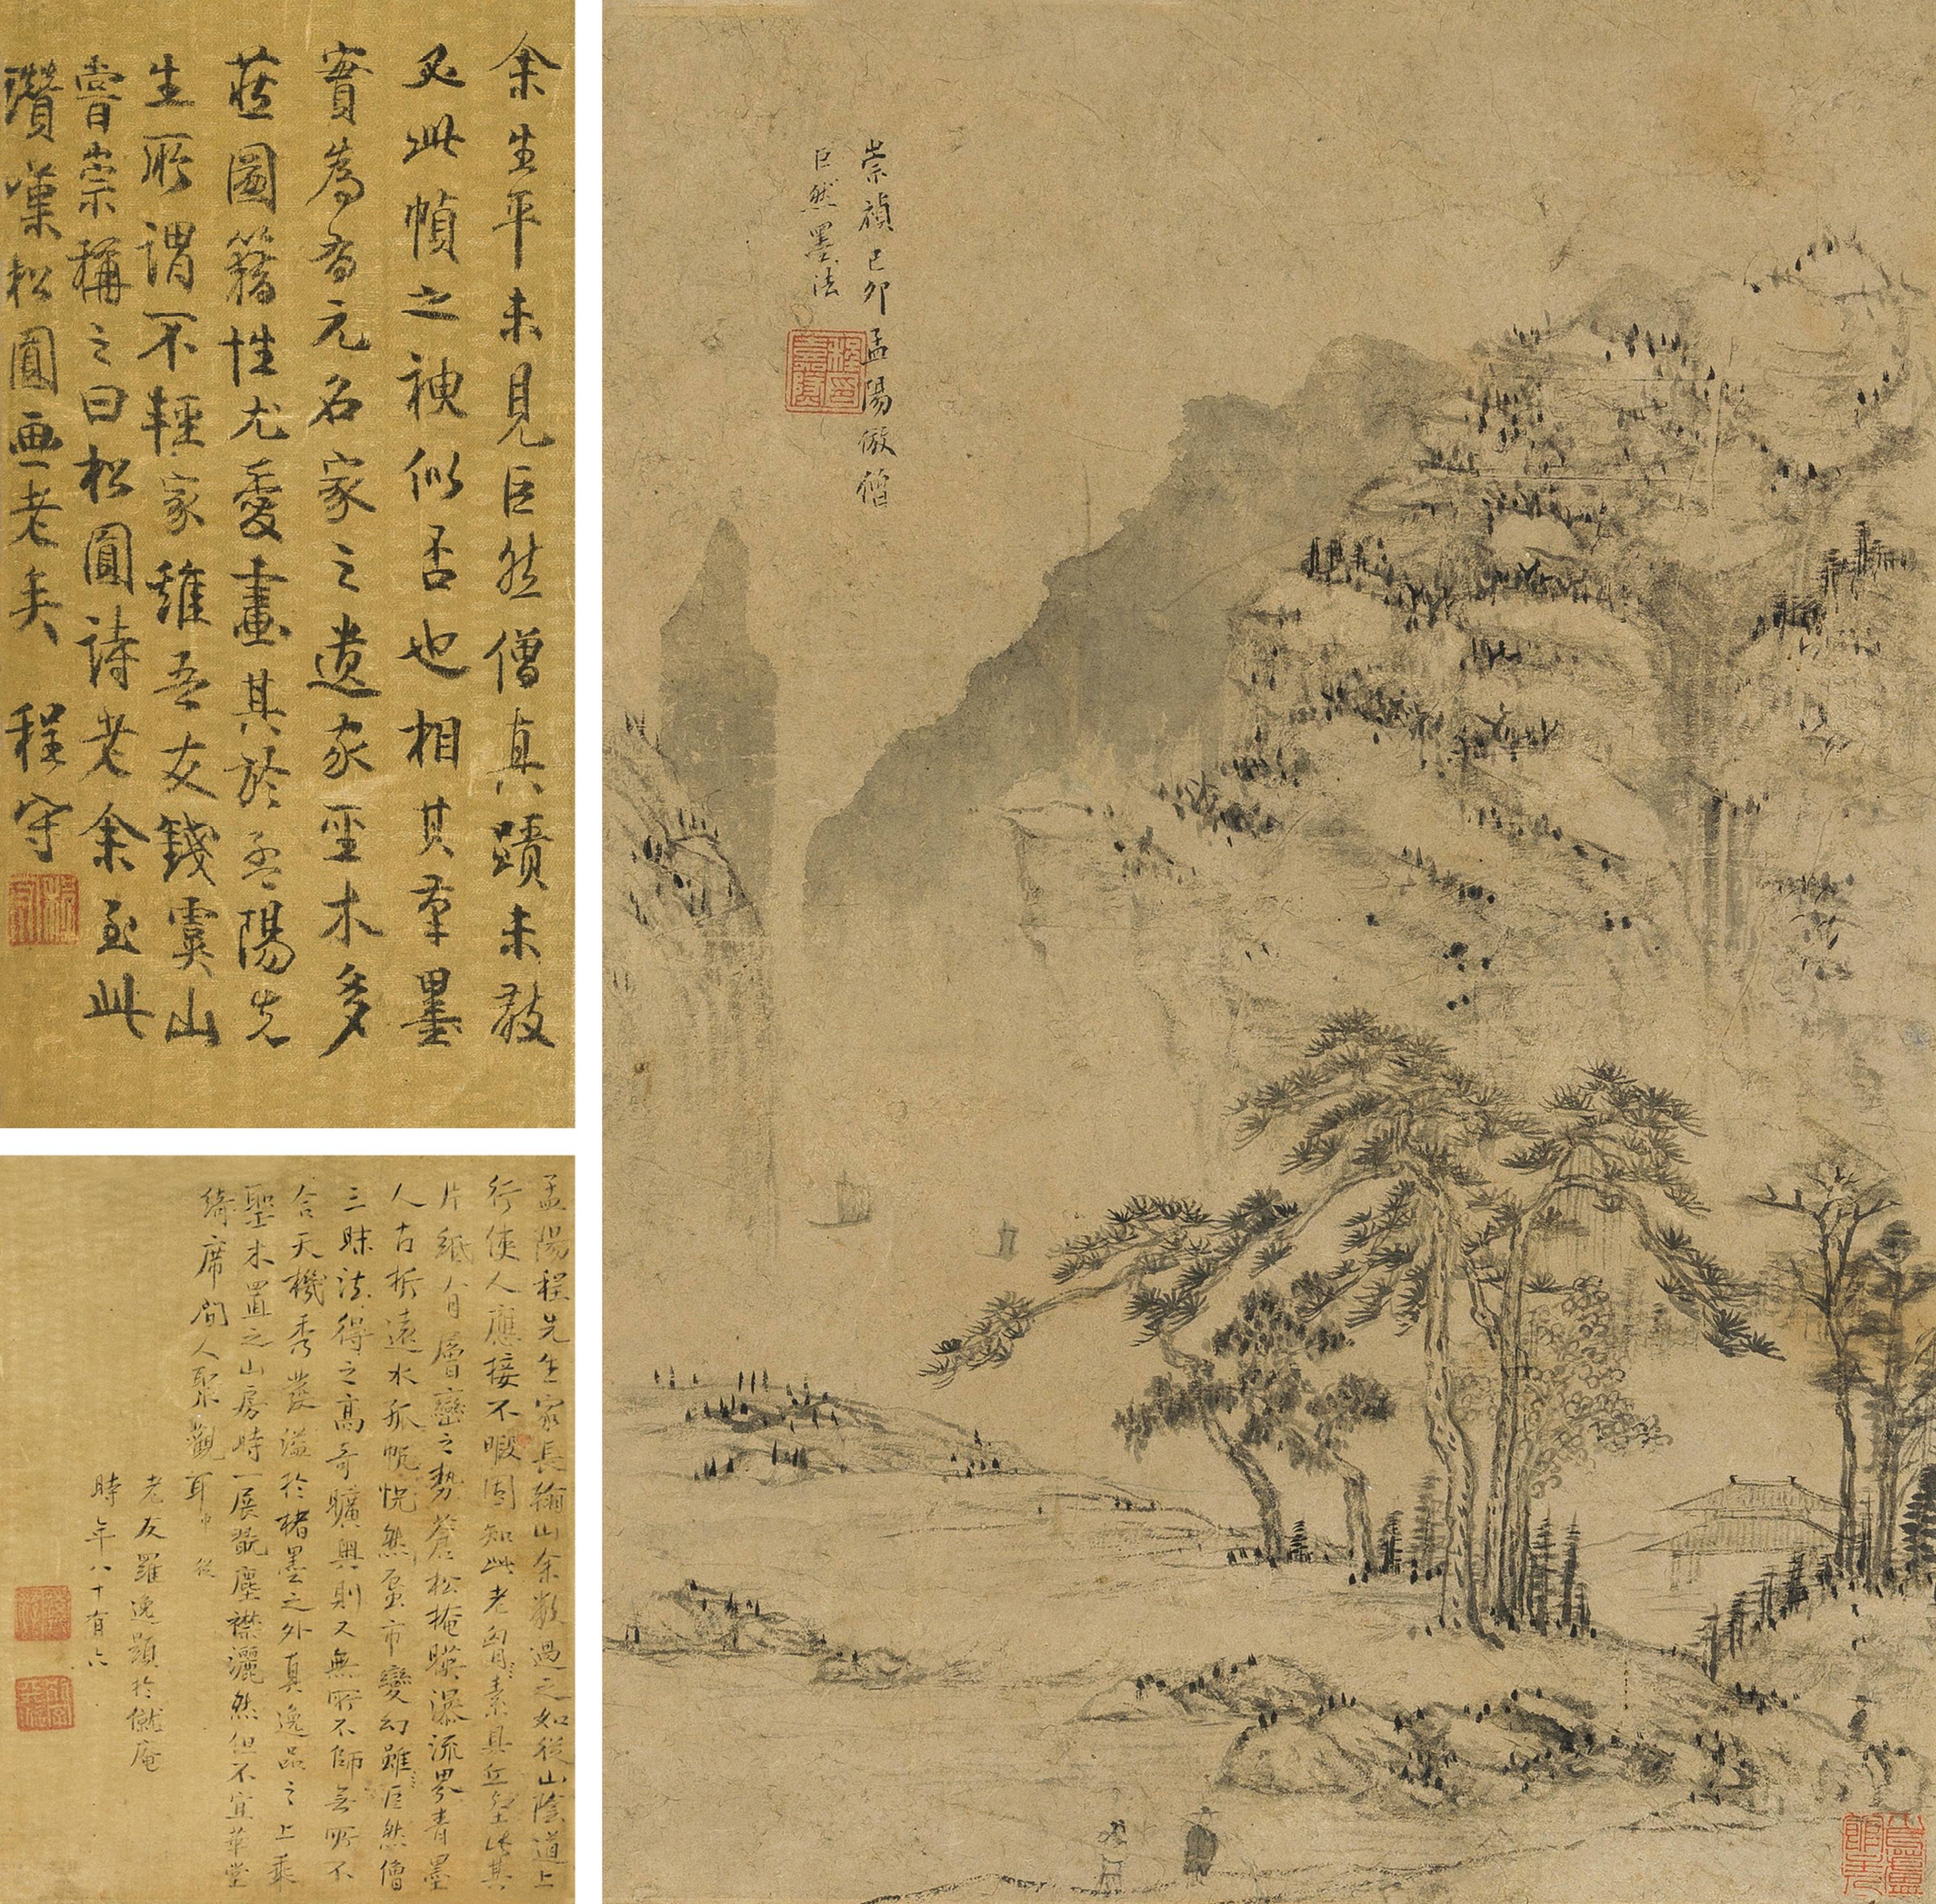 余生平未見巨然僧真蹟未敢
定此幀之神似否也相其筆墨
實為有元名家之遺家聖木多
藏圖籍性尤愛畫其於孟陽先
生所謂不輕家雞吾友錢虞山
嘗崇稱之曰松圓詩老余至此
讚嘆松圓画老矣 程守
孟陽程先生家長翰山余數過之如從山陰道上
行使人應接不暇固知此老胷素具丘壑此其
片紙有層巒之勢蒼松掩暎瀑流界青墨
人古析遠水孤帆恍然蜃市變幻雖巨然僧
三昧法得之高奇曠與則又無所不師無所不
合天機秀發溢於楮墨之外真逸品之上乘
聖木置之山房時一展翫塵襟灑然但不宜華堂
綺席間人聚觀耳
老友羅逸題於儼庵
時年八十有六
崇禎己卯孟陽倣僧
巨然墨法